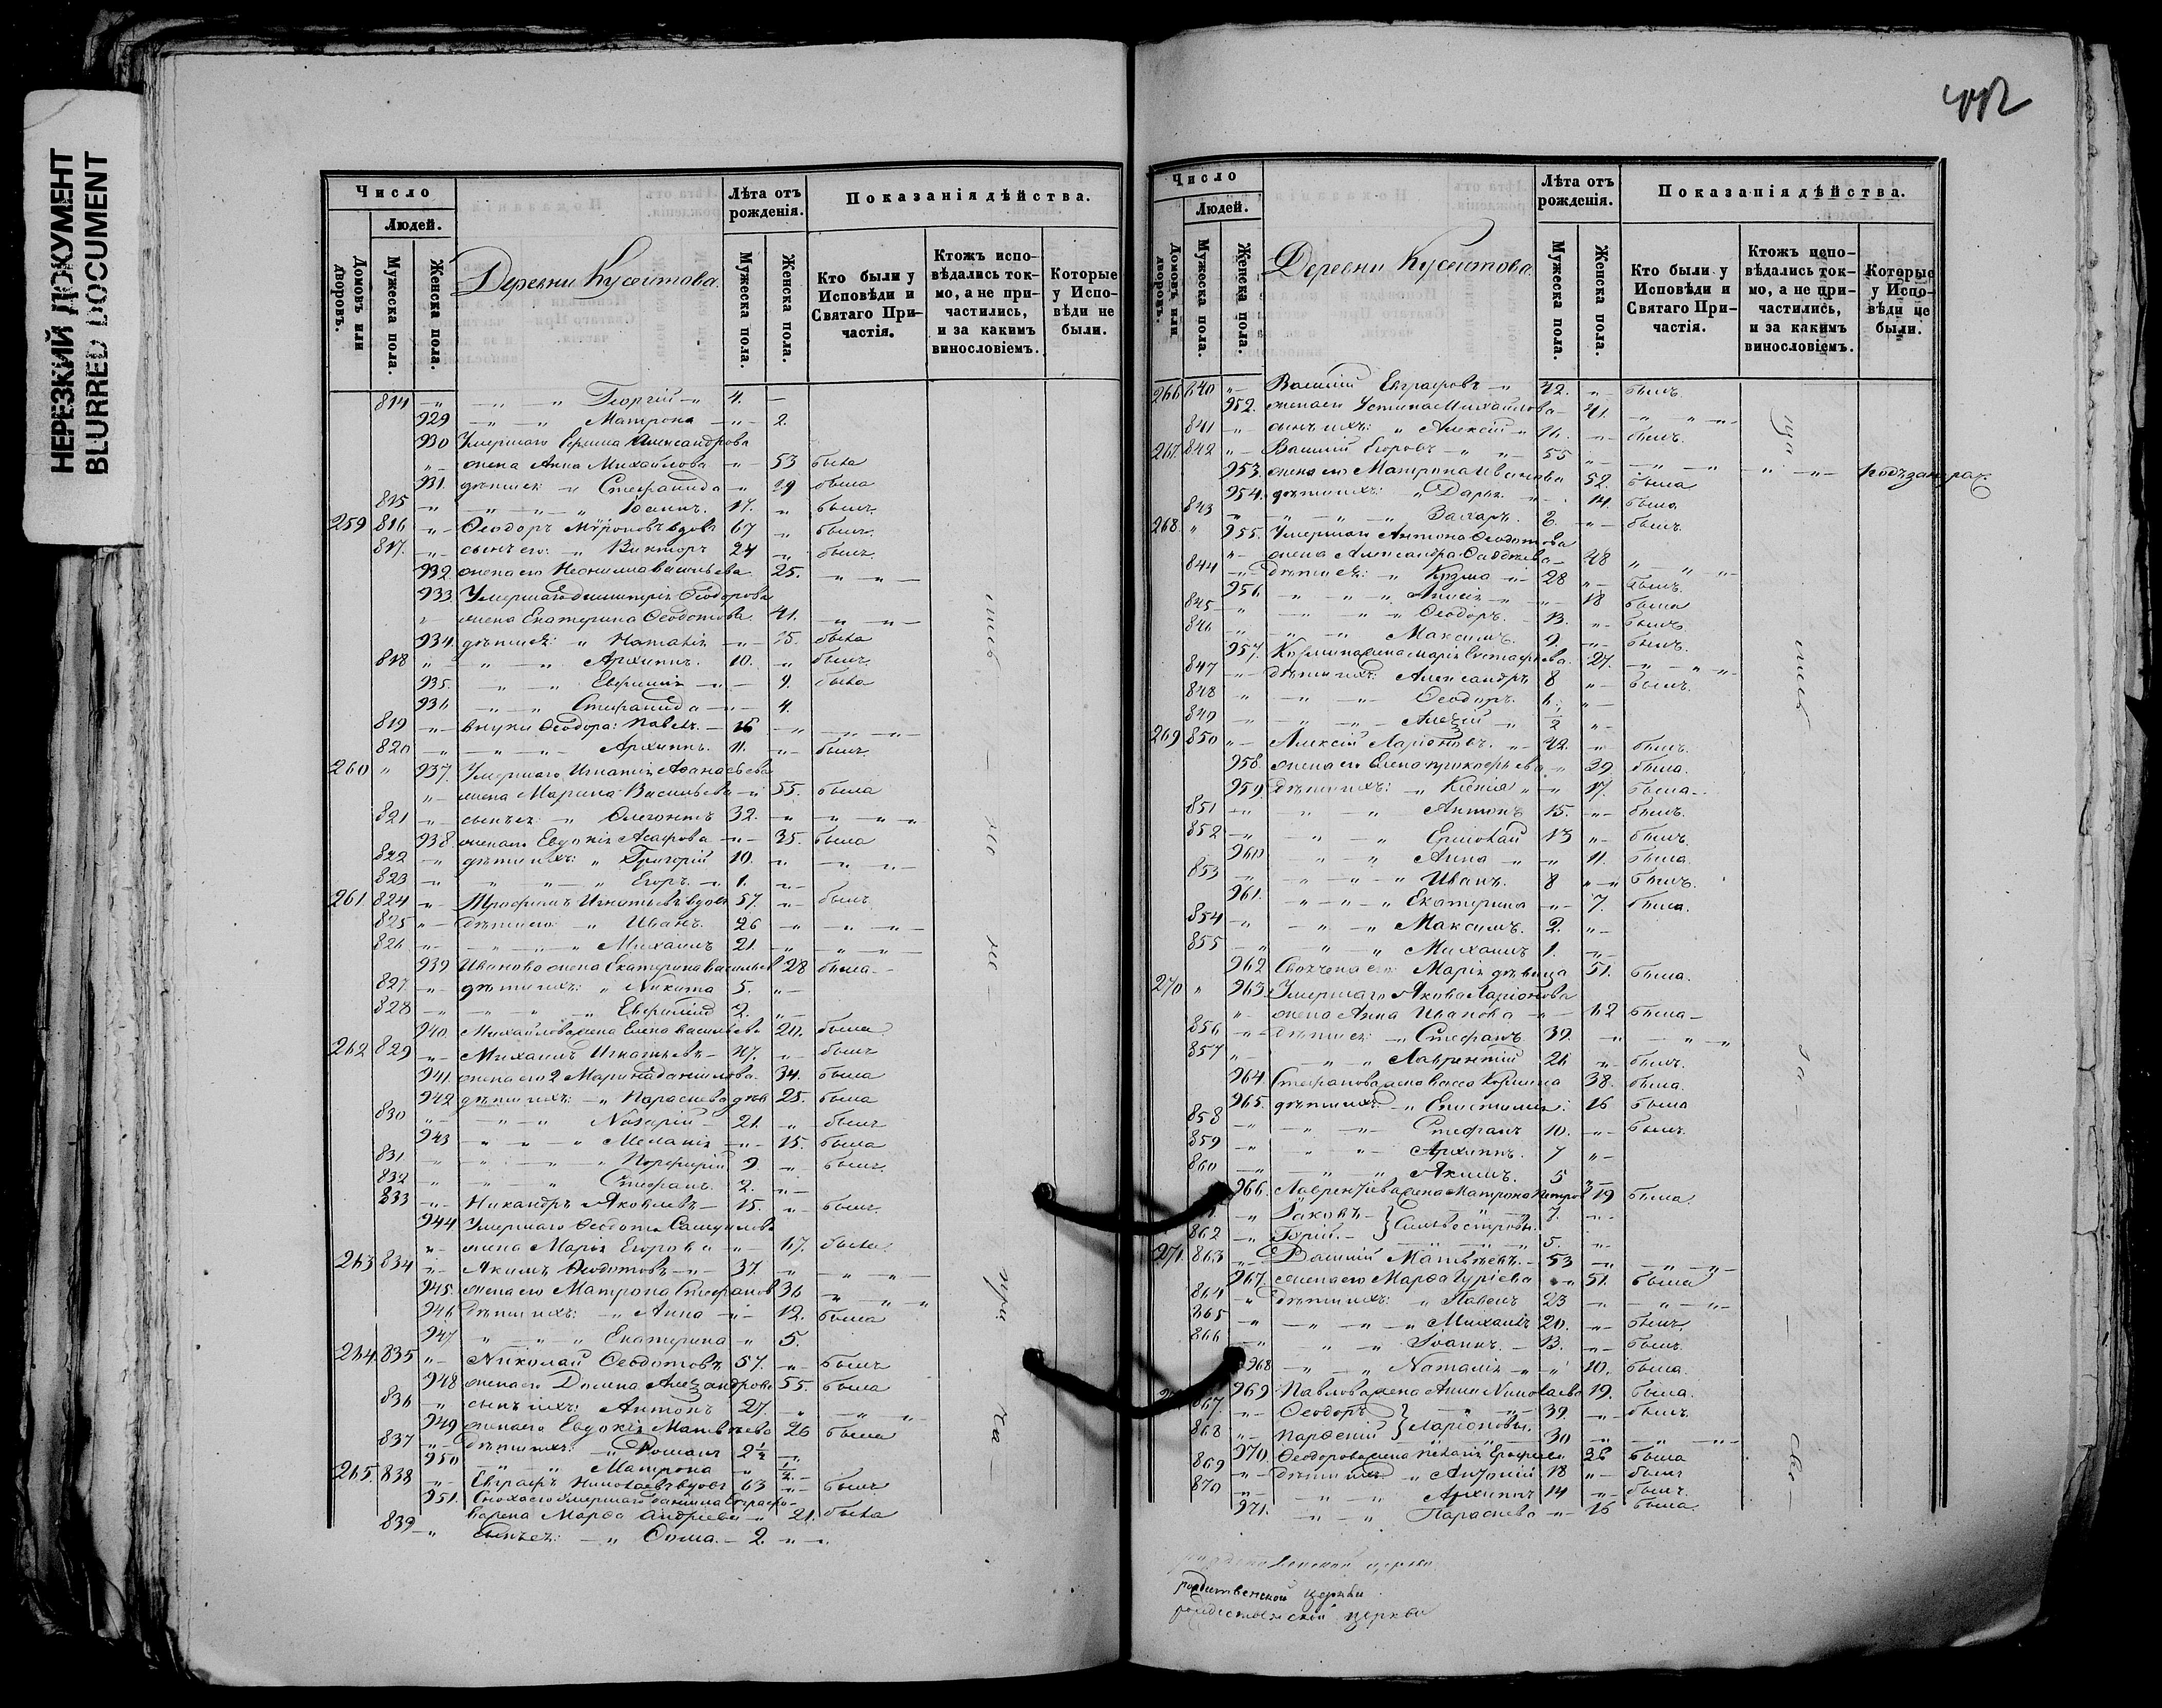 НЕРЕЗКИЙ ДОКУМЕНТ
BLURRED DOCUMENT
Число
Людей.
Домовъ или дворовъ.
Мужеска пола.
Женска пола.
Деревни Кусеитова.
Лѣта отъ рожденія.
Мужеска пола.
Женска пола.
Показанія дѣйства.
Кто были у Исповѣди и Святаго Причастія.
Ктожъ исповѣдались токмо, а не причастились, и за какимъ винословіемъ.
Которые у Исповѣди не были.
814 Георгій 4.
929 Матрона 2.
930 Умершаго Ефима Александрова
жена Анна Михайлова 53 была
931. дѣти ея: Стефанида 29 была
815 Іоаннъ. 17. былъ.
259 816 Ѳеодоръ Мѵроновъ вдовъ 67 былъ.
817. сынъ его: Викторъ 24 былъ.
932. жена его Неонилла Васильева 25.
933. Умершаго Димитрія Ѳеодорова
жена Екатерина Ѳеодотова 41.
934. дѣти ея: Наталія 15. была
818 Архиппъ. 10. былъ.
935. Евфимія 9. была
936 Стефанида 4.
819 внуки Ѳеодора: Павелъ. 16
820 Архиппъ. 11. былъ.
260 937. Умершаго Игнатія Аѳанасьева
жена Марина Васильева 55. была
821 сынъ ея: Флегонтъ 32.
938. жена его Евдокія Асафова 35. была
822 дѣти ихъ: Григорій 10.
823 Егоръ. 1.
261 824 Трофимъ Игнатьевъ вдовъ 57. былъ
825 дѣти его: Иванъ. 26
826 Михаилъ 21.
939 Иванова жена Екатерина Васильев 28 была
827. дѣти ихъ: Никита 5.
828 Евфимій 2.
940. Михайлова жена Елена Васильева 20. была
262 829 Михаилъ Игнатьевъ 47. былъ
941. жена его 2 Марина Даниилова. 34. была
942 дѣти ихъ: Параскева дѣв 25. была
830 Назарій 21. былъ
943 Меланія 15. была
831. Порфирій 9. былъ.
832 Стефанъ. 2.
833 Никандръ Яковлевъ 15. былъ.
944 Умершаго Ѳеодота Самуилова
жена Марія Егорова 67. была.
263 834 Акимъ Ѳеодотовъ 37.
945. жена его Матрона Стефанов 36
946 дѣти ихъ: Анна 12. была
947 Екатерина 5.
264. 835 Николай Ѳеодотовъ 57. былъ
948 жена его Домна Александрова 55. была
836 сынъ ихъ: Антонъ 27.
949 жена его Евдокія Матвѣева 26 была
837 дѣти ихъ: Романъ 2½
950 Матрона ½.
265. 838 Евграфъ Николаевъ вдовъ 63 былъ
951. Сноха его умершаго Даниила Евграфо-
ва жена Марѳа Андреева 21. была
839 сынъ ея: Ѳома. 2.
412
Число
Людей.
Домовъ или дворовъ.
Мужеска пола.
Женска пола.
Деревни Кусеитова.
Лѣта отъ рожденія.
Мужеска пола.
Женска пола.
Показанія дѣйства.
Кто были у Исповѣди и Святаго Причастія.
Ктожъ исповѣдались токмо, а не причастились, и за какимъ винословіемъ.
Которые у Исповѣди не были.
266 840 Василій Евграфовъ 42. былъ.
952. жена его Устина Михайлова 41.
841 сынъ ихъ: Алексій 16. былъ.
267 842 Василій Егоровъ 55
953. жена его Матрона Иванова 52. была
954. дѣти ихъ: Дарья 14. была
843 Захаръ. 8. былъ.
268. 955. Умершаго Антона Ѳеодотова
жена Александра 48
844 дѣти ея: Козма 28 былъ.
956. Анисія 18 была
845 Ѳеодоръ. 13. былъ
846 Максимъ. 9. былъ.
957. Козмина жена Марія Евстафьева. 27.
847 дѣти ихъ: Александръ 8 былъ.
848 Ѳеодоръ. 6.
849 Алексій 2
269 850 Алексій Ларіоновъ. 42. былъ.
958. жена его Елена Прокофьева 39. была.
959. дѣти ихъ: Ксенія 17. была
851 Антонъ 15. былъ.
852 Ермолай 13 былъ.
960 Анна 11. была.
853 Иванъ. 8 былъ.
961. Екатерина 7. была.
854 Максимъ. 2.
855 Михаилъ 1.
962 Марія дѣвица 51. была.
270 963. Умершаго Якова Ларіонова
жена Анна Иванова 62 была
856 дѣти ея: Стефанъ. 39.
857 Лаврентій 26 былъ.
964. Стефанова жена Васса Козмина 38. была.
965. дѣти ихъ: Епистимія: 16 была
858 Стефанъ 10. былъ.
859 Архиппъ. 7
860 Акимъ. 5
966. Лаврентіева жена Матрона Петров 19 была.
Іаковъ } Сильвестровы. 7.
862 Гурій. 5.
271. 863 Василій Матвѣевъ. 53
967. жена его Марѳа Гуріева 51. была
864 дѣти ихъ: Павелъ 23
865 Михаилъ 20. былъ.
866 Іоаннъ. 13. былъ.
968 Наталія 10. была.
969 Павлова жена Анна Николаева 19. была.
867. Ѳеодоръ } Ларіоновы. 39. былъ.
868 Парѳеній 30
970. Ѳеодорова жена Пелагія Ерофеев 36 была
869 дѣти ихъ Антоній 18 былъ
870 Архиппъ 14 былъ.
971. Параскева 16 была.
рождественской церкви
рождественской церкви